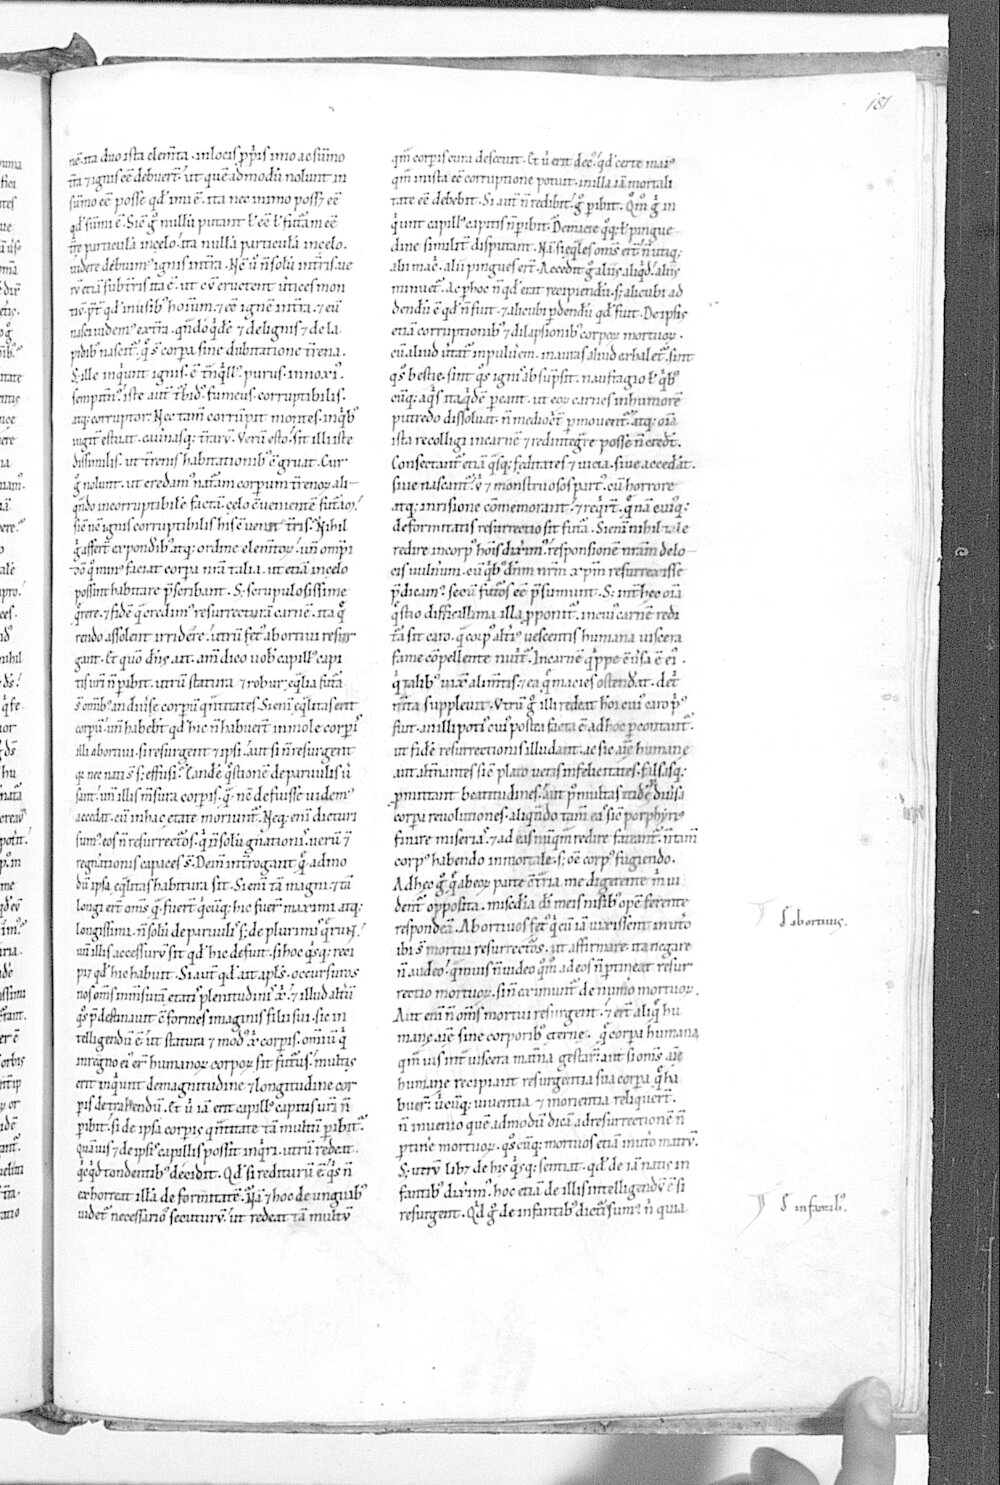 181
nē. ita duo ista elem̄ta. in locis p̱priis imo ac sūmo
t̄ra ⁊ ignis eē debuer̄t. ut quē admodū nolunt in
sūmo eē posse qd̓ imi ē. ita nec in imo posse eē
qd̓ sūmi ē. Sic g̊ nullā putant t̓ eē t̓ futurā eē
t̄re particulā in celo. ita nullā particulā in celo.
uidere debuim᷒ ignis in t̄ra. Nc̄ ū n̄ solū in t̄ris. ue
rū etiā sub t̄ris ita ē. ut eū eructent uertices mon
tiū. p̄t̄ qd̓ in usib᷒ hoīum. ⁊ eē ignē in t̄ra. ⁊ eū
nasci uidem᷒ ex t̄ra. qn̄do qd̄ē ⁊ de lignis ⁊ de la
pidib᷒ nascit̄. q̄ s̄ corpa sine dubitatione t̄rena.
S; ille inquiunt ignis. ē t̄nq̓ll᷒. purus. innoxi᷒.
sempitn᷒. iste aut̄ t̄bid᷒. fumeus. corruptibilis.
atq; corruptor. Nec tam̄ corrūpit montes. in qb᷒
iugit̄ estuat. cauernasq; t̄raʀ. Verū esto. sit illi iste
dissimilis. ut t̄renis habitationib᷒ c̄gruat. Cur
g̊ nolunt. ut credam᷒ naturam corporum t̄renoꝝ ali-
qn̄do incorruptibile factā. celo c̄uenientē futurā.
sic nc̄ ignis corruptibilis his c̄uenit t̄ris. Nihil
g̊ affert̄ ex pondib᷒ atq; ordine elem̄toꝝ. un̄ omp̄i
dō q̄ min᷒ faciat corpa nr̄a talia. ut etiā in celo
possint habitare p̄scribant. S; scrupulosissime
q̄rere. ⁊ fidē q̄ credim᷒ resurrecturā carnē. ita q̄
rendo assolent irridere. utrū fet᷒ abortiui resur
gant. Et quo dn̄s ait. am̄ dico uob᷒ capill᷒ capi
tis ur̄i n̄ pibit. utrū statura ⁊ robur. eq̄lia futura
s̄ omīb᷒. an diuse corpū qn̄titates. Si enī eq̄litas erit
corpū. un̄ habebt̄ qd̓ hic n̄ habuert̄ in mole corporis
illi abortiui. si resurgent ⁊ ipsi. aut si n̄ resurgent
q; nec nati s̄ s; effusi. eandē q̄stionē de paruulis ū
sant. un̄ illis m̄sura corpis. q̄ nc̄ defuisse uidem᷒
accedat. cū in hac etate moriunt̄. Neq; enī dicturi
sum᷒. eos n̄ resurrectos. q̄ n̄ solū gn̄ationis. uerū ⁊
regn̄ationis capaces s̄. Dein int̄rogant q̄. admo
dū ipsa eq̄litas habitura sit. Si enī tā magni. ⁊ tā
longi ert̄ om̄s q̄. fuert̄ qcūq; hic fuert̄ maximi atq;
longissimi. n̄ solū de paruulis. s; de plurimis q̄runt.
un̄ illis accessurū sit qd̓ hic defuit. si hoc qsq; reci
piet qd̓ hic habuit. Si aut̄ qd̓ ait apl̓s. occursuros
nos om̄s in m̄surā etatis plenitudinis xp̄i. ⁊ illud alt̄ū
qs p̄destinauit c̄formes imaginis filii sui. sic in
telligendū ē. ut statura ⁊ mod᷒ xp̄i corpis. omīum q̄
in regno ei᷒ ert̄ humanoꝝ corpoꝝ sit futurus. multis
erit inquiunt de magnitudine ⁊ longitudine cor
pis detrahendū. Et ū iā erit capill᷒ capitis ur̄i n̄
pibit. si de ipsa corpis qn̄titate tā multū pibit.
quāuis ⁊ de ipsis capillis possit inq̄ri. utrū redeat.
qcqd tondentib᷒ decidit. Qd̓ si rediturū ē. q̄s n̄
exhorreat illā deformitatē. Nā ⁊ hoc de unguib᷒
uidet̄ necessario secuturū. ut redeat tā multū
qm̄ corpis cura desecuit. Et ū erit dec᷒. qd̓ certe mai᷒
qm̄ in ista eē corruptione potuit. in illa iā inmortali
tate eē debebit. Si aut̄ n̄ redibit. g̊ pibit. Qm̄ g̊ in
q̄unt capill᷒ capitis n̄ pibit. De macie qq; t̓ pingue-
dine similit̄ disputant. Nā si eq̄les om̄s ert̄. n̄ utiq;
alii mac̄. alii pingues ert̄. Accedit g̊ aliis aliqd̓. aliis
minuet̄. Ac p hoc n̄ qd̓ erat recipiendū. s; alicubi ad
dendū ē qd̓ n̄ fuit. ⁊ alicubi pdendū qd̓ fuit. De ipsis
etiā corruptionib᷒ ⁊ dilapsionib᷒ corpoꝝ mortuoꝝ.
cū aliud ūtat̄ in puluerem. in auras aliud exhalet̄. sint
qs bestie. sint qs ignis absūpsit. naufragio t̓ qb᷒
cūq; aqs ita qd̄ē pereant. ut eoꝝ carnes in humorē
putredo dissoluat. n̄ mediocrit̄ pmouent̄. atq; oīa
ista recolligi in carnē ⁊ redintegrari posse n̄ credt̄.
Consectant̄ etiā qsq; feditates ⁊ uicia. siue accedāt.
siue nascant̄. ū ⁊ monstruosos part᷒. cū horrore
atq; inrisione cōmemorant. ⁊ requirt̄. q̄ nā cuiq;
deformitatis resurrectio sit futura. Si enī nihil tale
redire in corp᷒ hoīs dixim᷒. responsionē nr̄am de lo-
cis uulnerum. cū qb᷒ dn̄m nr̄m xp̄m resurrexisse
p̄dicam᷒. se cū futuros eē p̄sumunt. S; int̄ hec oīa
q̄stio difficillima illa p̱ponit̄. in cui᷒ carnē redi
tura sit caro. q̄ corp᷒ alt̄i᷒ uescentis humana uiscera
fame cōpellente nutrit̄. In carnē q̄ppe c̄uersa ē ei᷒.
q̄ talib᷒ uixit alim̄tis. ⁊ ea q̄ macies ostenderat. det
m̄ta suppleuit. Vtrū g̊ illi redeat hoī cui᷒ caro p᷒
fuit. an illi poti᷒ cui᷒ postea facta ē. adhoc pcontant̄.
ut fidē resurrectionis illudant. ac sic aīe humane
aut alt̄nantes sicut plato. ueras infelicitates. falsasq;
p̱mittant beatitudines. aut p᷒ multas itidē p diuersa
corpa reuolutiones. aliqn̄do tam̄ eā sicut porphyri᷒
finire miserias. ⁊ ad eas nūquā redire fateant̄. n̄ tam̄
corp᷒ habendo inmortale. s; oē corp᷒ fugiendo.
Ad hec g̊. q̄ ab eoꝝ parte c̄tria me digerente mihi ui
dent̄ opposita. misc̄dia dī meis nisib᷒ opē ferente
respondeā. Abortiuos fet᷒. q cū iā uixissent in utero
ibi s̄ mortui. resurrecturos. ut affirmare. ita negare
n̄ audeo. quāuis n̄ uideo qm̄ ad eos n̄ ptineat resur
rectio mortuoꝝ. si n̄ eximunt̄ de numero mortuoꝝ.
Aut enī n̄ om̄s mortui resurgent. ⁊ ert̄ aliq̄ hu
mane aīe sine corporib᷒ et̄ne. q̄ corpa humana
qm̄uis int̄ uiscera mat̄na gestart̄. aut si om̄s aīe
humane recipiant resurgentia sua corpa q̄ ha
buert̄. ubicūq; uiuentia ⁊ morientia reliquert̄.
n̄ inuenio quē admodū dicā ad resurrectionē n̄
ptinere mortuoꝝ. qs cūq; mortuos etiā in utero matrū.
S; utrū lib; de his qsq; sentiat. qd̓ de iā natis in
fantib᷒ dixim᷒. hoc etiā de illis intelligendū ē si
resurgent. Qd̓ g̊ de infantib᷒ dicturi sum᷒. n̄ quia
d̓ abortiuis.
d̓ infantib᷒.